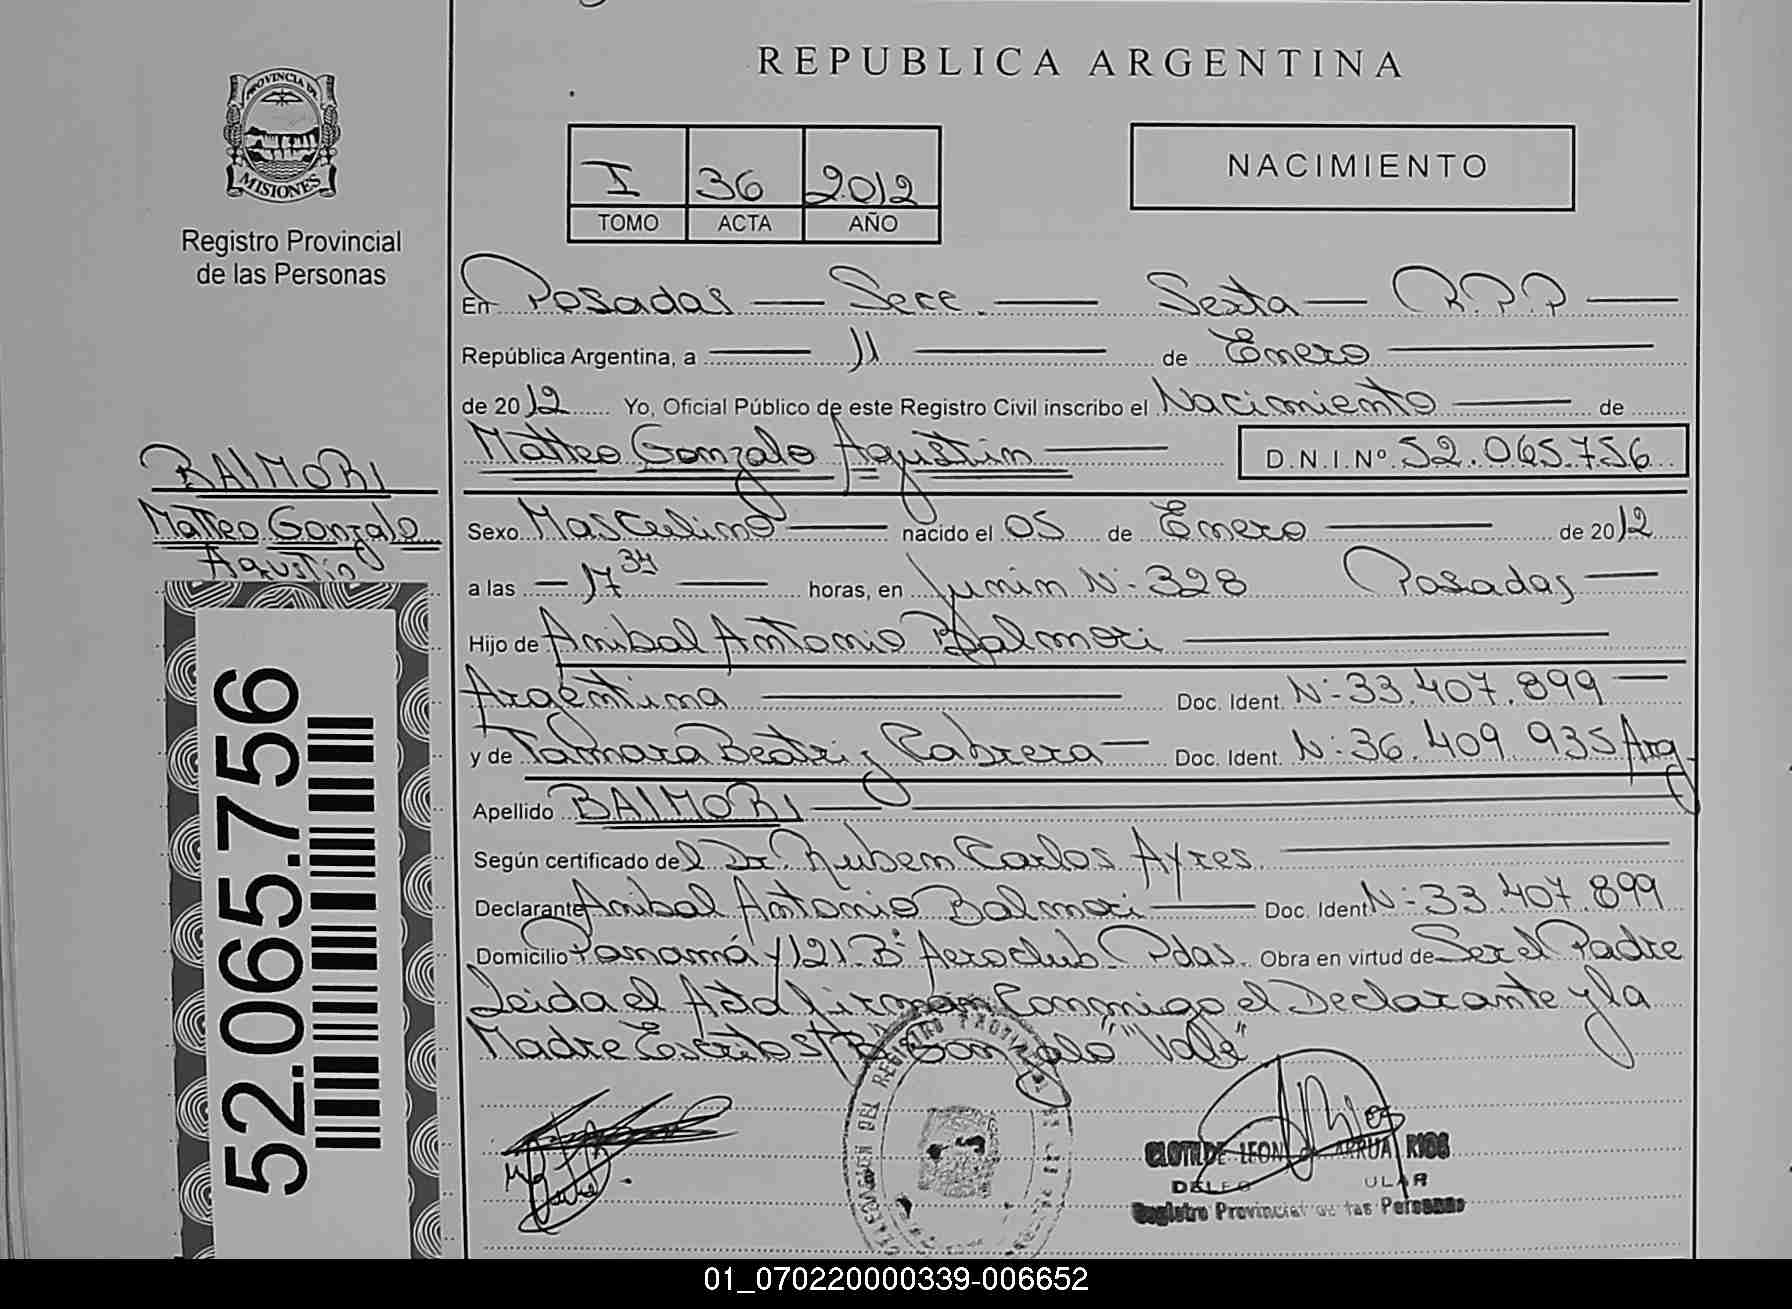 REPUBLICA ARGENTINA
PROVINCIA DE
MISIONES
Registro Provincial
de las Personas
I 36 2012
TOMO ACTA AÑO
NACIMIENTO
En Posadas — Secc. — Sexta — R.P.P —
República Argentina, a — 11 — de Enero —
de 2012 Yo, Oficial Público de este Registro Civil inscribo el Nacimiento — de
Matteo Gonzalo Agustin — D.N.I.Nº 52.065.756
BALMORI
Matteo Gonzalo
Agustin
Sexo Masculino — nacido el 05 de Enero — de 2012
a las — 17 34 — horas, en Junin N:- 328 Posadas —
Hijo de Anibal Antonio Balmori —
Argentina — Doc. Ident. N:- 33.407.899 —
y de Tamara Beatriz Cabrera — Doc. Ident. N:- 36.409.935 Arg
Apellido BALMORI —
Según certificado del Dr Ruben Carlos Ayres —
Declarante Anibal Antonio Balmori — Doc. Ident N:- 33.407.899
Domicilio Panamá y 121 Bº Aeroclub Pdas. Obra en virtud de Ser el Padre
Leida el Acta firman Conmigo el Declarante y la
Madre Escrito S/R Gonzalo "Vale"
52.065.756
DELEGACION DEL REGISTRO PROVINCIAL
CLOTILDE LEON ARRUA RIOS
Registro Provincial de las Personas
01_070220000339-006652